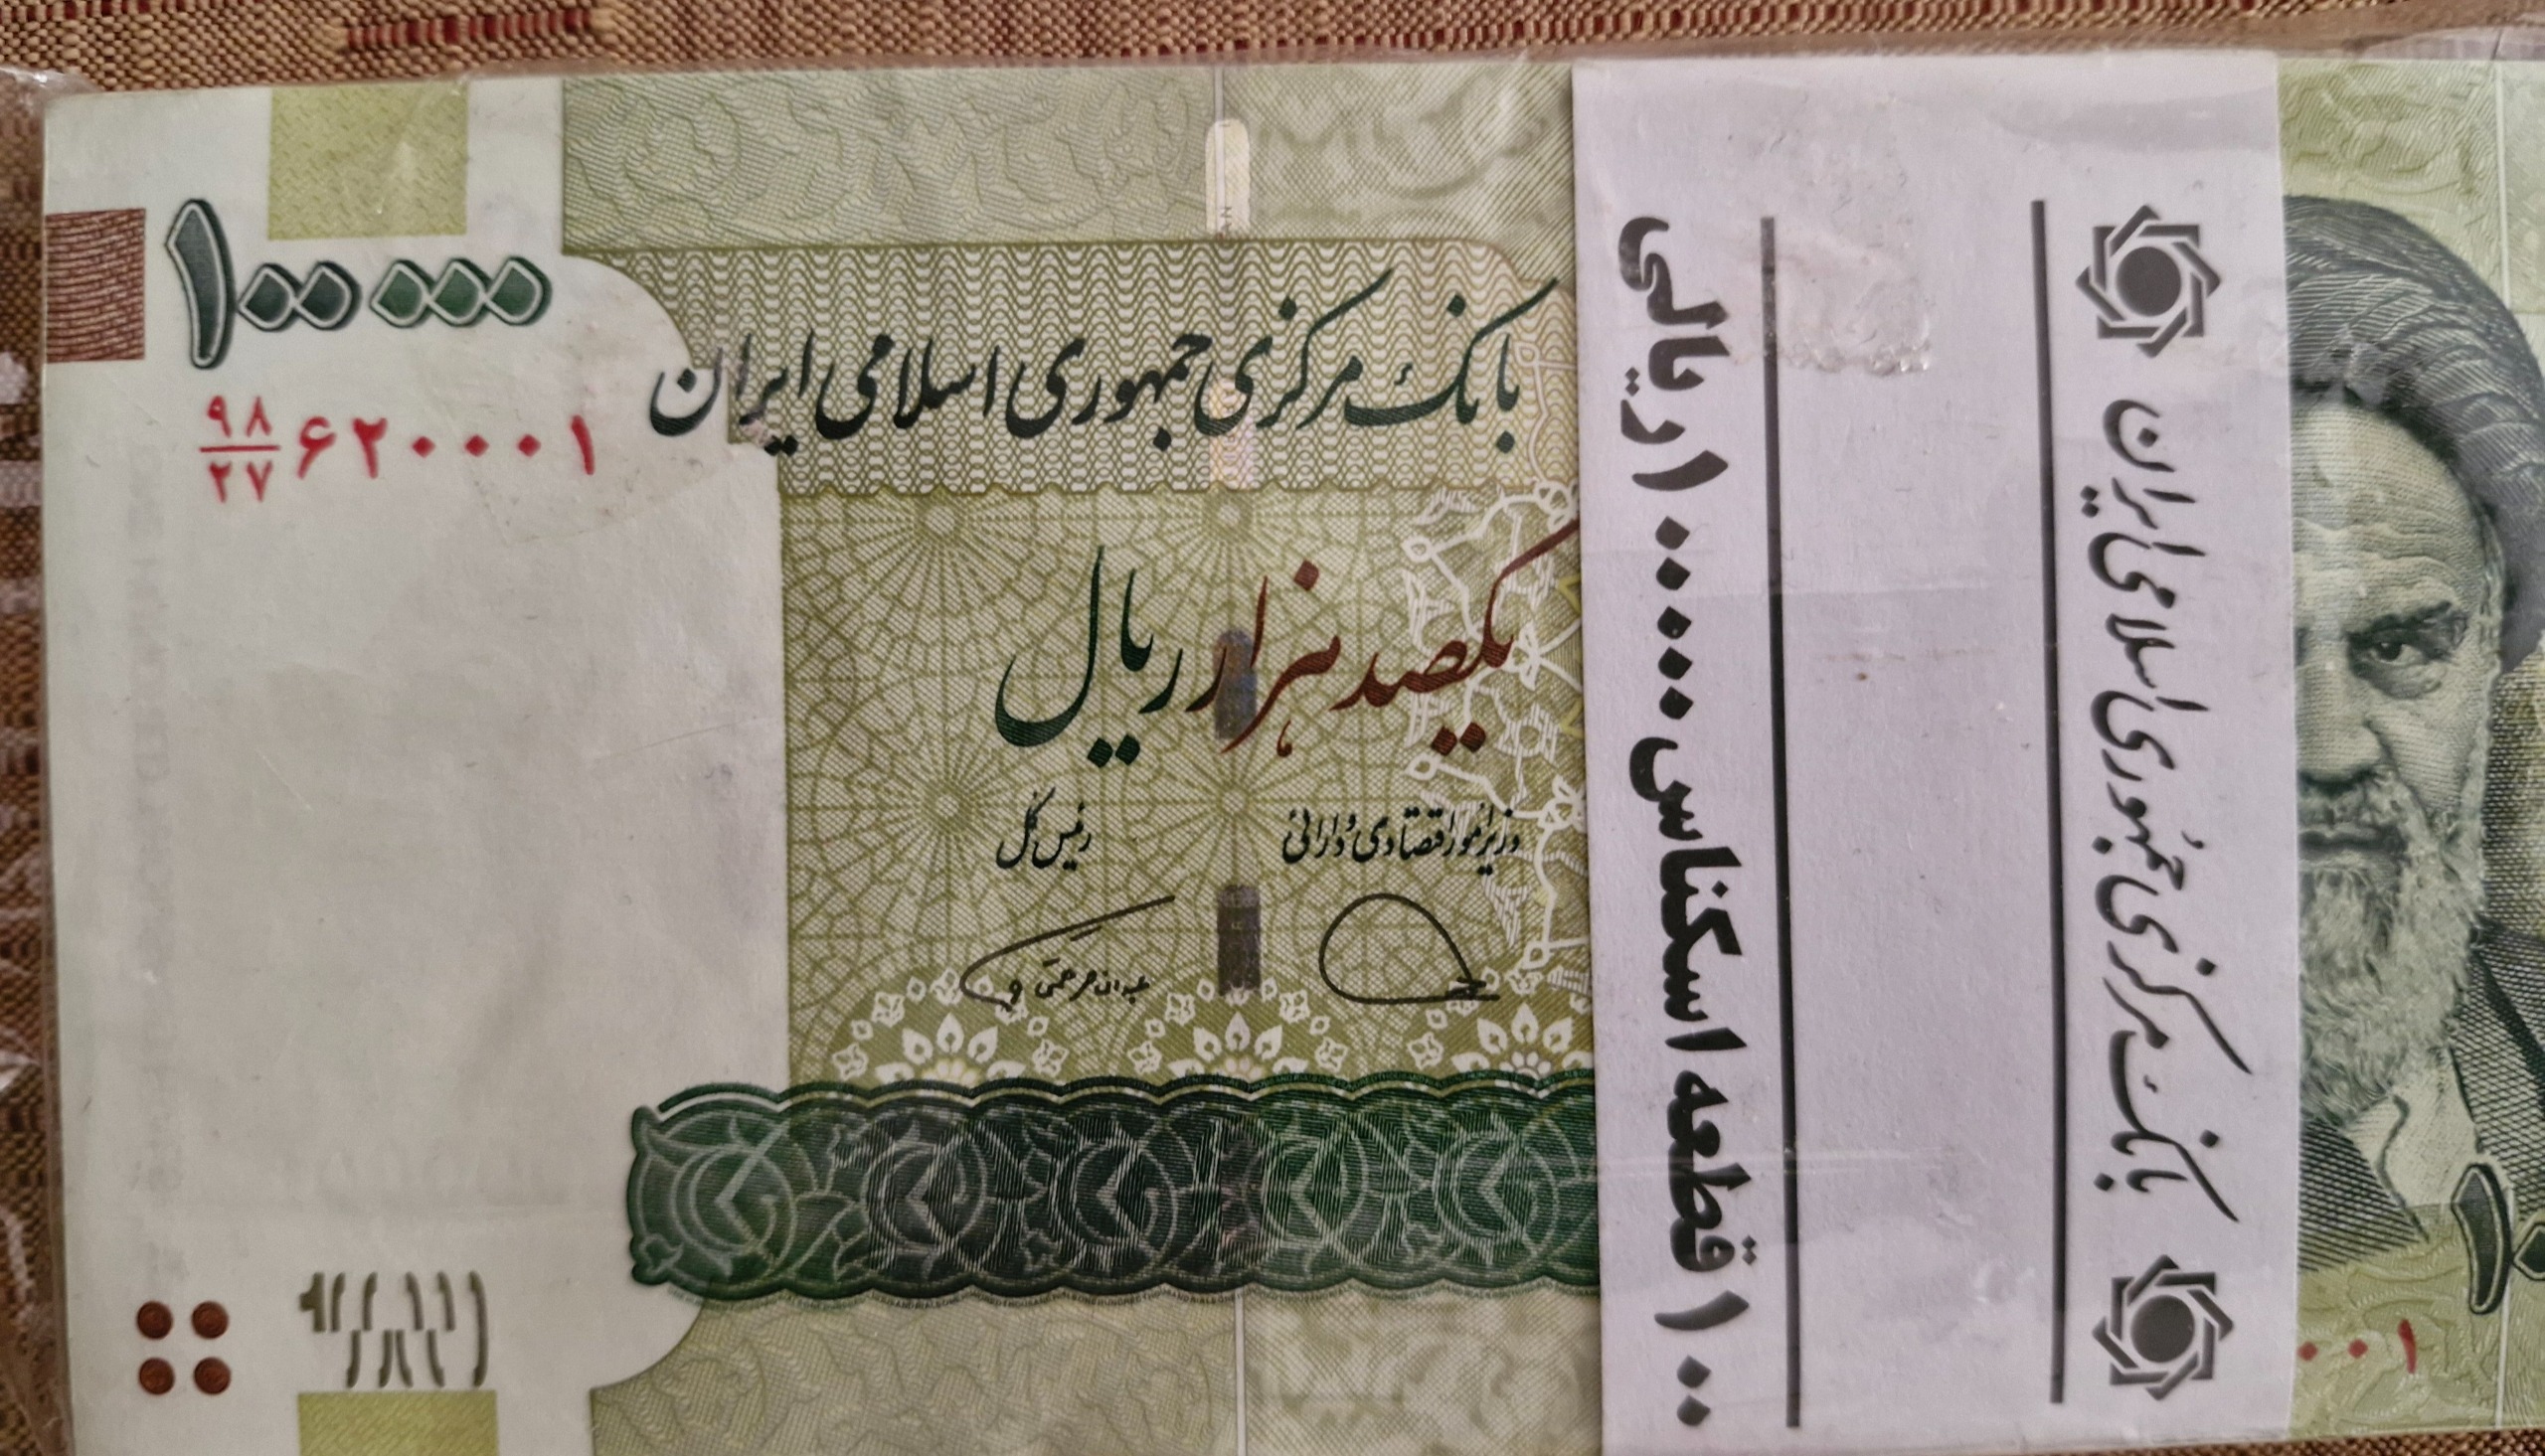 ۱۰۰۰۰۰
بانک مرکزی جمهوری اسلامی ایران
۹۸/۲۷ ۶۲۰۰۰۰۱
یکصد هزار ریال
وزیر امور اقتصادی و دارائی
رئیس کل
۱۰۰ قطعه اسکناس ۱۰۰۰۰۰ ریالی
بانک مرکزی جمهوری اسلامی ایران
۰۰۱